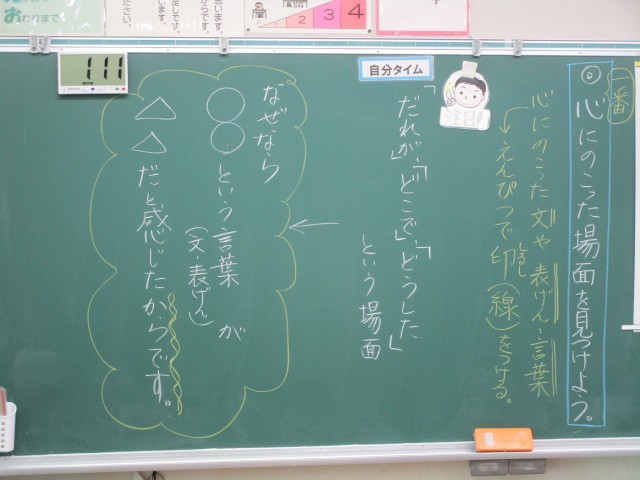 一番
◎心にのこった場面を見つけよう。
心にのこった文や表げん・言葉
えんぴつで印(線)をつける。
しるし
注目!
自分タイム
「だれが」、「どこで」、「どうした」
という場面
なぜなら
○○という言葉が
(文・表げん)
△△だと感じたからです。
111
3 4
おわりまで